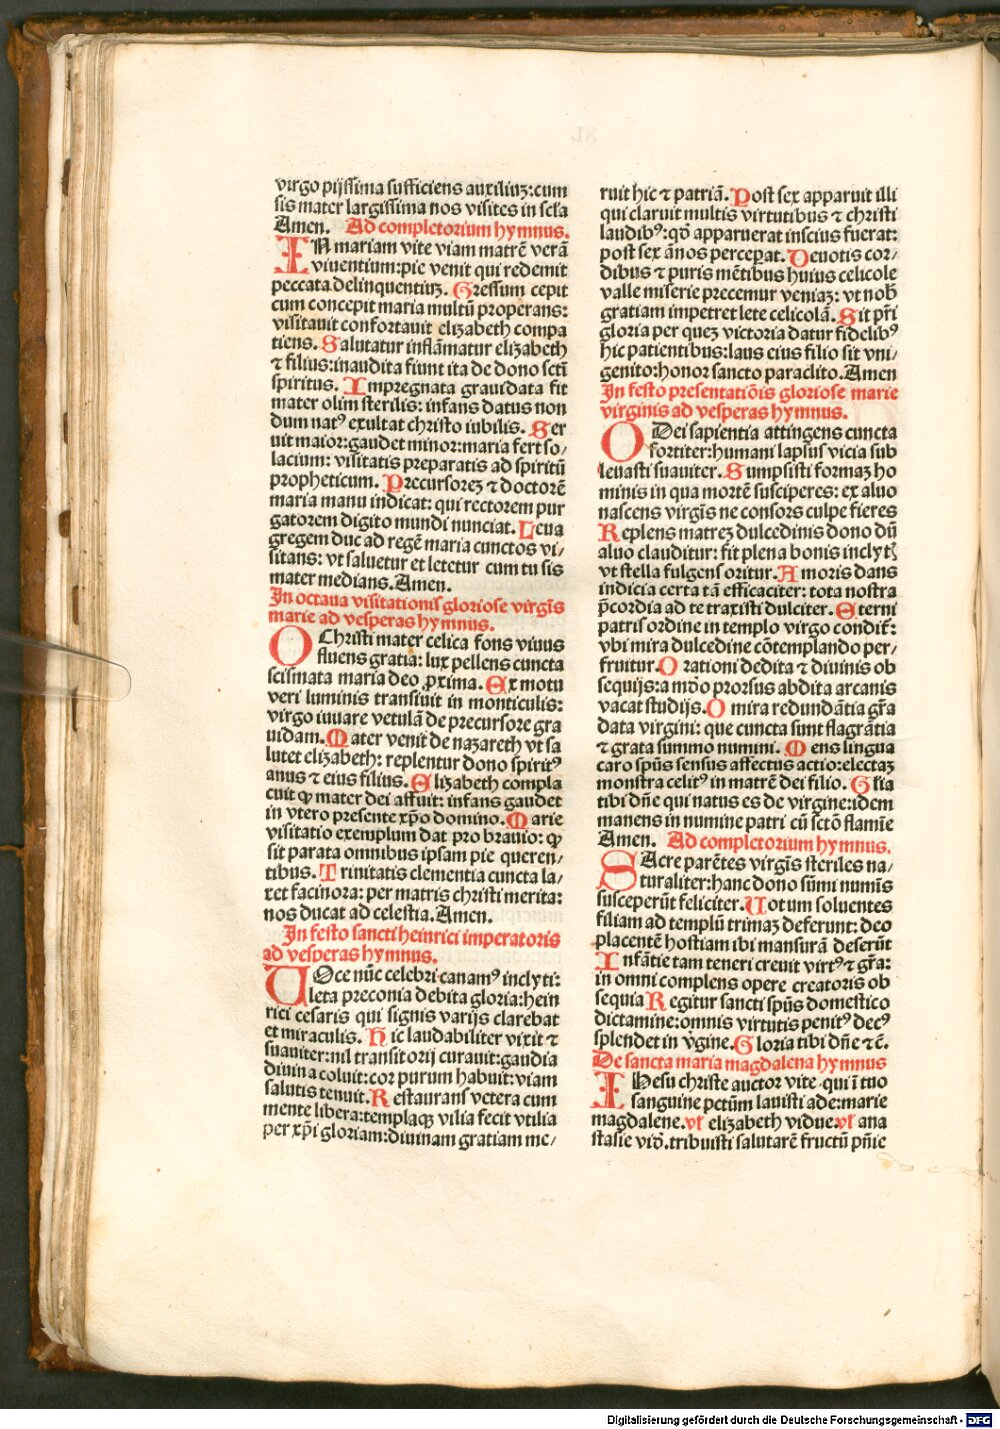 virgo pijſſima ſufficiens auxiliuꝫ:cum
ſis mater largiſſima nos viſites in ſcła
Amen. Ad completorium hymnus.
IN mariam vite viam matrē verā
viuentium:pie venit qui redemit
peccata delinquentiuꝫ. Greſſum cepit
cum concepit maria multū properans:
viſitauit confortauit elizabeth compa
tiens. Salutatur inflāmatur elizabeth
⁊ filius:inaudita fiunt ita de dono ſcti
ſpiritus. Impregnata grauidata fit
mater olim ſterilis: infans datus non
dum natꝰ exultat chriſto iubilis. Ser
uit maior:gaudet minor:maria fert ſo/
lacium: viſitatis preparatis ad ſpiritū
propheticum. Precurſoreꝫ ⁊ doctorē
maria manu indicat: qui rectorem pur
gatorem digito mundi nunciat. Leua
gregem duc ad regē maria cunctos vi/
ſitans: vt ſaluetur et letetur cum tu ſis
mater medians. Amen.
In octaua viſitationis glorioſe virgīs
marie ad veſperas hymnus.
O Chriſti mater celica fons viuus
fluens gratia: lux pellens cuncta
ſciſmata maria deo ꝓxima. Ex motu
veri luminis tranſiuit in monticulis:
virgo iuuare vetulā de precurſore gra
uidam. Mater venit de nazareth vt ſa
lutet elizabeth: replentur dono ſpiritꝰ
anus ⁊ eius filius. Elizabeth compla
cuit ꝙ mater dei affuit: infans gaudet
in vtero preſente xp̄o domino. Marie
viſitatio exemplum dat pro brauio: ꝙ
ſit parata omnibus ipſam pie queren/
tibus. Trinitatis clementia cuncta la/
xet facinora: per matris chriſti merita:
nos ducat ad celeſtia. Amen.
In feſto ſancti heinrici imperatoris
ad veſperas hymnus.
VOce nūc celebri canamꝰ inclyti:
leta preconia debita gloria:hein
rici ceſaris qui ſignis varijs clarebat
et miraculis. Hic laudabiliter vixit ⁊
ſuauiter:nil tranſitorij curauit:gaudia
diuina coluit:cor purum habuit:viam
ſalutis tenuit. Reſtaurans vetera cum
mente libera:templaqꝫ vilia fecit vtilia
per xp̄i gloriam:diuinam gratiam me/
ruit hic ⁊ patriā. Poſt ſex apparuit illi
qui claruit multis virtutibus ⁊ chriſti
laudibꝰ: qd̄ apparuerat inſcius fuerat:
poſt ſex ānos perceꝑat. Deuotis cor/
dibus ⁊ puris mētibus huius celicole
valle miſerie precemur veniaꝫ: vt nob̄
gratiam impetret lete celicolā. Sit pr̄i
gloria per queꝫ victoria datur fidelibꝰ
hic patientibus:laus eius filio ſit vni/
genito:honor ſancto paraclito. Amen
In feſto preſentatiōis glorioſe marie
virginis ad veſperas hymnus.
O Dei ſapientia attingens cuncta
fortiter:humani lapſus vicia ſub
leuaſti ſuauiter. Sumpſiſti formaꝫ ho
minis in qua mortē ſuſciperes: ex aluo
naſcens virgīs ne conſors culpe fieres
Replens matreꝫ dulcedinis dono dū
aluo clauditur: fit plena bonis inclyt
vt ſtella fulgens oritur. Amoris dans
indicia certa tā efficaciter: tota noſtra
p̄cordia ad te traxiſti dulciter. Eterni
patris ordine in templo virgo condit̄:
vbi mira dulcedine cōtemplando per/
fruitur. Orationi dedita ⁊ diuinis ob
ſequijs:a mōo prorſus abdita arcanis
vacat ſtudijs. O mira redundātia gr̄a
data virgini: que cuncta ſunt flagrātia
⁊ grata ſummo numini. Mens lingua
caro ſpūs ſenſus affectus actio:electaꝫ
monſtra celitꝰ in matrē dei filio. Głia
tibi dn̄e qui natus es de virgine:idem
manens in numine patri cū ſctō flamīe
Amen. Ad completorium hymnus.
SAcre parētes virgīs ſteriles na/
turaliter:hanc dono ſūmi numīs
ſuſceperūt feliciter. Uotum ſoluentes
filiam ad templū trimaꝫ deferunt: deo
placentē hoſtiam ibi manſurā deſerūt
Infātie tam teneri creuit virtꝰ ⁊ gr̄a:
in omni complens opere creatoris ob
ſequia Regitur ſancti ſpūs domeſtico
dictamine:omnis virtutis penitꝰ decꝰ
ſplendet in v̄gine. Gloria tibi dn̄e ⁊ c̄.
De ſancta maria magdalena hymnus
IHeſu chriſte auctor vite qui ī tuo
ſanguine pctūm lauiſti ade:marie
magdalene. vł elizabeth vidue. vł ana
ſtaſie vid̄. tribuiſti ſalutarē fructū pn̄ie
Digitalisierung gefördert durch die Deutsche Forschungsgemeinschaft - DFG